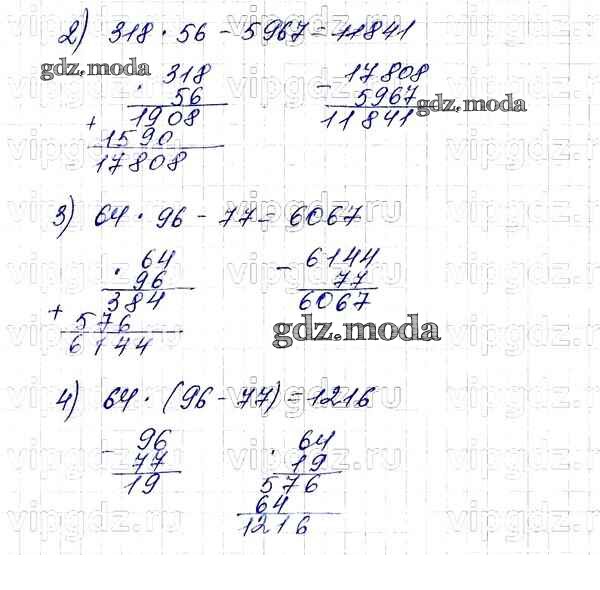 2) 318 · 56 - 5967 = 11841
gdz.moda
· 318
56
+ 1908
1590
17808
- 17808
5967
11841
gdz.moda
3) 64 · 96 - 77 = 6067
· 64
96
+ 384
576
6144
- 6144
77
6067
gdz.moda
4) 64 · (96 - 77) = 1216
- 96
77
19
· 64
19
576
64
1216
vipgdz.ru